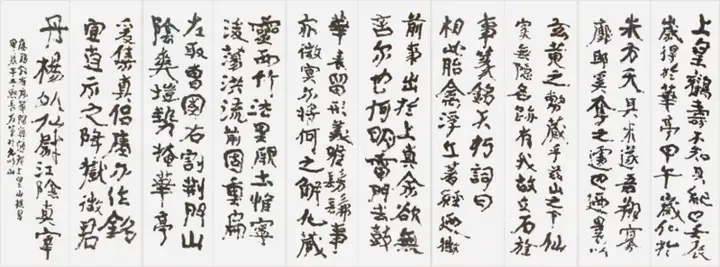 上皇鶴壽不知其紀壬辰
歲得於華亭甲午歲化於
朱方天其未遂吾翔寥
廓耶奚奪之遽也迺裹以
玄黄之幣藏乎兹山之下仙
家無隱名跡有我故立石旌
事篆銘不朽詞曰
相此胎禽浮丘著經迺徵
前事出於上真余欲無
言尔也何明雷門去鼓
華表留形義唯髣髴事
亦微冥尔將何之解化厥
靈西竹法里厥土惟寧
後蕩洪流前固重扃
左取曹國右割荆門山
陰爽塏勢掩華亭
爰集真侣瘞尔作銘
宜直示之降嶽徵君
丹楊外仙尉江陰真宰